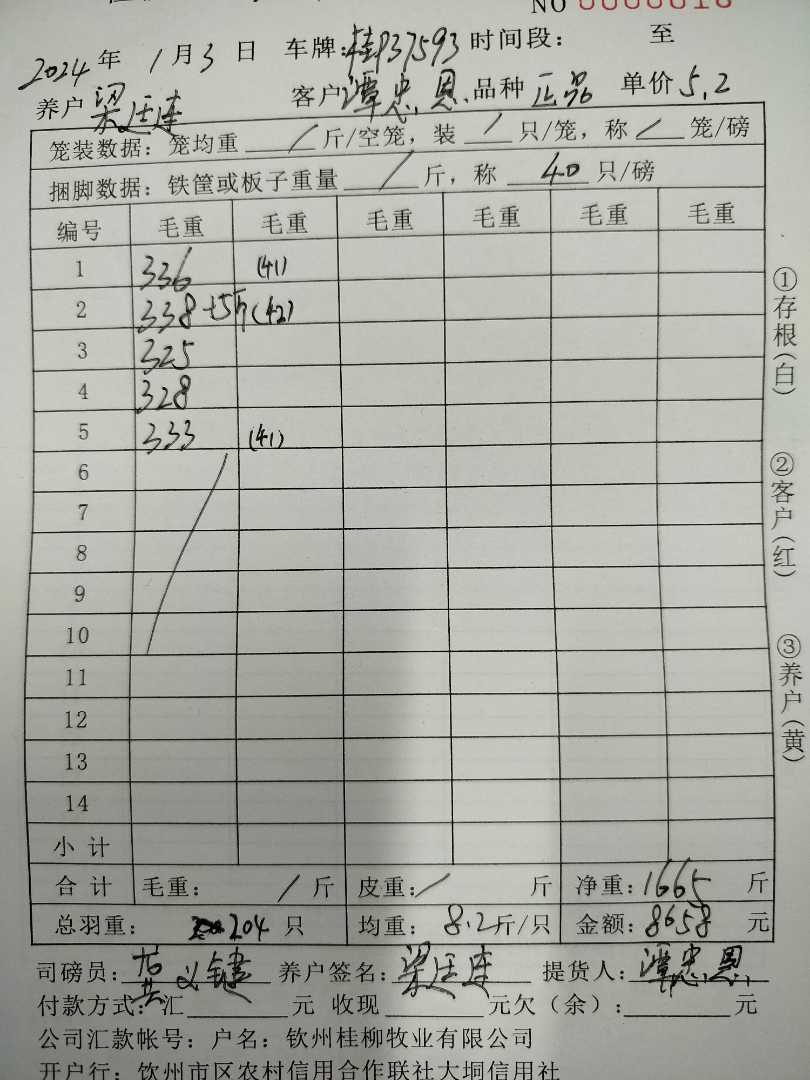 NO 0000018
2024 年 1 月 3 日 车牌:桂P37593 时间段: 至
养户 梁廷连 客户 谭忠恩 品种 正品 单价 5.2
笼装数据: 笼均重 / 斤/空笼, 装 / 只/笼, 称 / 笼/磅
捆脚数据: 铁筐或板子重量 / 斤, 称 40 只/磅
编号 毛重 毛重 毛重 毛重 毛重 毛重
1 336 (41)
2 338+5斤(42)
3 325
4 328
5 333 (41)
6
7
8
9
10
11
12
13
14
小 计
合 计 毛重: / 斤 皮重: / 斤 净重: 1665 斤
总羽重: 204 只 均重: 8.2斤/只 金额: 8658 元
司磅员: 黄义键 养户签名: 梁廷连 提货人: 谭忠恩
付款方式: 汇 元 收现 元欠(余): 元
公司汇款帐号: 户名: 钦州桂柳牧业有限公司
开户行: 钦州市区农村信用合作联社大垌信用社
①存根(白)
②客户(红)
③养户(黄)